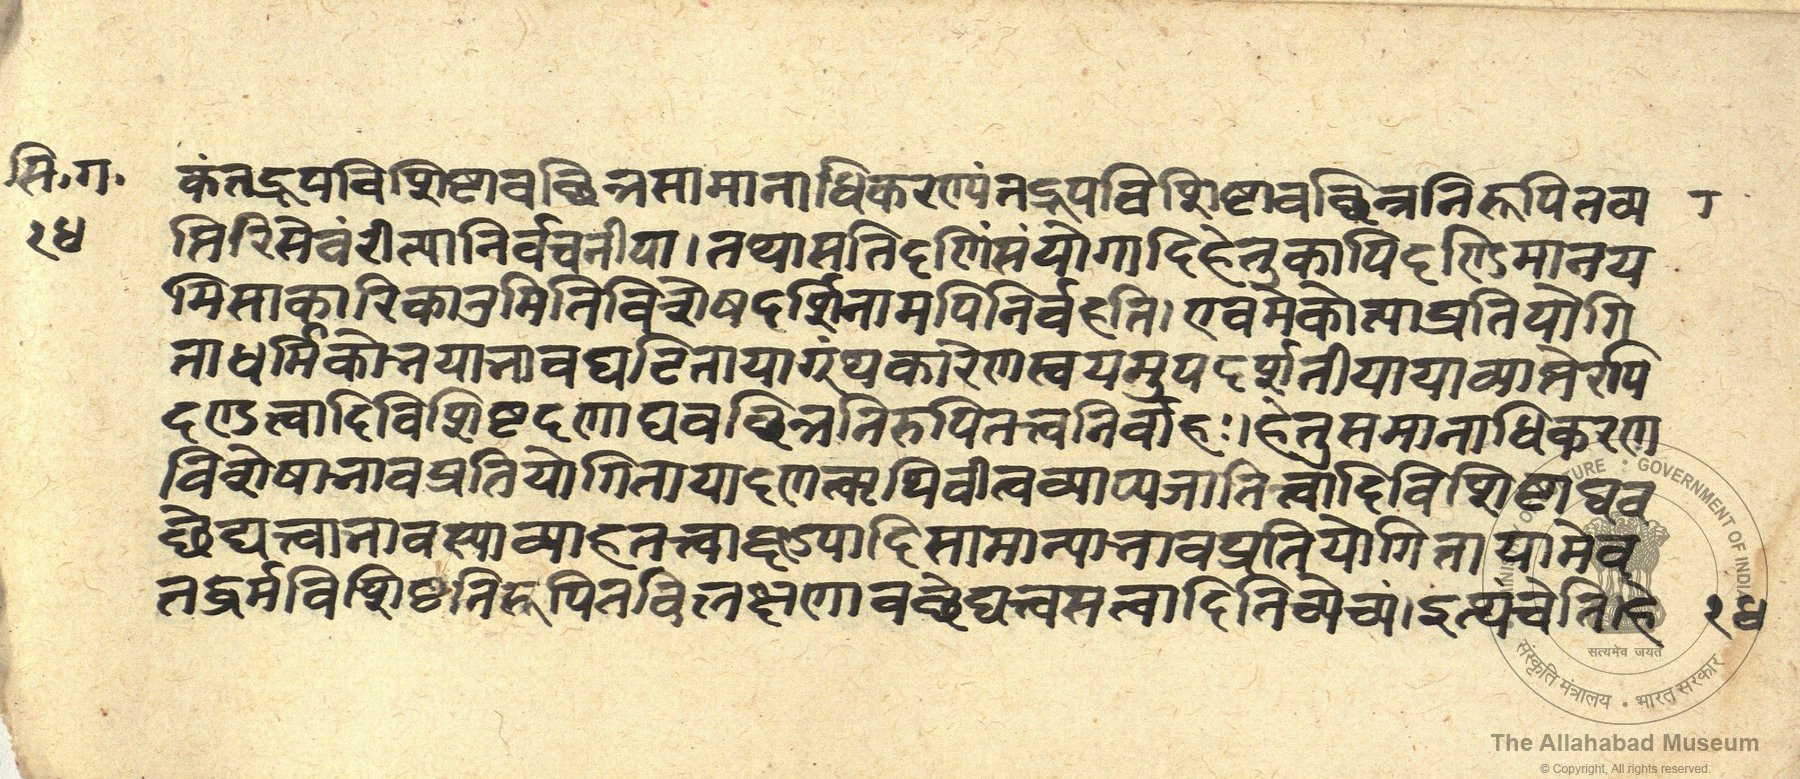 सि.ग.
२४
कंतद्रूपविशिष्टावच्छिन्नसामानाधिकरण्यंतद्रूपविशिष्टावच्छिन्ननिरूपितव्या
प्तिरिसेवंरीत्यानिर्वचनीया।तथासतिदण्डिसंयोगादिहेतुकापिदण्डिमानय
मिसाकारिकानुमितिविशेषदर्शिनामपिनिर्वहति।एवमेकोत्याप्रतियोगि
ताधर्मिकोभयाभावघटितायाग्रंथकारेणस्वयमुपदर्शनीयायाव्याप्तेरपि
दण्डत्वादिविशिष्टदण्डाद्यवच्छिन्ननिरुपितत्त्वनिर्वाहः।हेतुसमानाधिकरण
विशेषाभावप्रतियोगितायादण्डत्वपृथिवीत्वव्याप्यजातित्वादिविशिष्टाद्यव
छेद्यत्त्वाभावस्याव्याहतत्त्वाद्दण्ड्यादिसामान्याभावप्रतियोगितायामेव
तद्धर्मविशिष्टनिरूपितविलक्षणावछेद्यत्त्वसत्वादितिध्येयं।इत्थंचेतिहे
२४
MINISTRY OF CULTURE • GOVERNMENT OF INDIA
सत्यमेव जयते
संस्कृति मंत्रालय • भारत सरकार
The Allahabad Museum
© Copyright, All rights reserved.